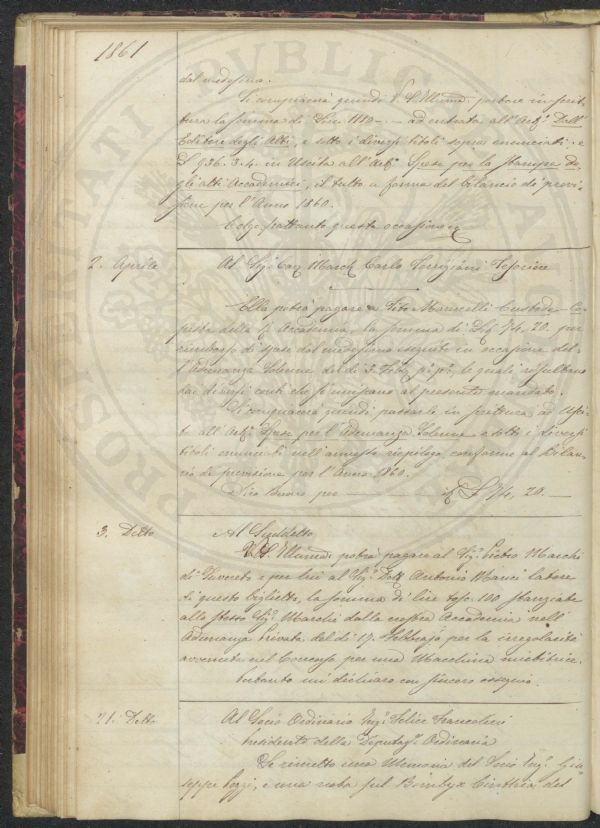 1861
dal medesimo.
Si compiacerà quindi V. S. Illma. portare in scrit-
tura la somma di Lire 1110 - - ad entrata all'Artº. Dall'
Editore degli Atti, e sotto i diversi titoli sopra enunciati; e
L 936. 3. 4. in Uscita all'Artº. Spese per la stampa de-
gli atti Accademici, il tutto a forma del bilancio di previ-
sione per l'Anno 1860.
Colgo frattanto questa occasione
2. Aprile
Al Sigº. Cav. March. Carlo Torrigiani Tesoriere
Ella potrà pagare a Vito Mannelli Custode Co-
pista della Accademia la somma di L 74. 20. per
rimborso di spese dal medesimo eseguite in occasione del-
l'Adunanza Solenne del dì 3. Febº. pº. pº. le quali resultano
dai diversi conti che si uniscono al presente mandato.
Si compiacerà quindi passarle in scrittura ad Usci-
ta all'Artº. Spese per l'Adunanza Solenne e sotto i diversi
titoli enunciati nell'annesso riepilogo conforme al Bilan-
cio di previsione per l'Anno 1860.
Dico buono per L 74. 20.
3. Detto
Al Suddetto
V. S. Illma. potrà pagare al Sigº. Pietro Marchi
di e per lui al Sigº. Dott. Antonio Manci latore
di questo biglietto, la somma di lire tosc. 100 stanziate
allo stesso Sigº. Marchi dalla nostra Accademia nell'
Adunanza Privata del dì 17. Febbrajo per la irregolarità
avvenuta nel Concorso per una Macchina mietitrice.
Intanto mi dichiaro con sincero ossequio.
21. Detto
Al Socio Ordinario Ingº. Felice Francolini
Presidente della Deputazº. Ordinaria
Le rimetto una Memoria del Socio Ingº. Giu-
seppe Pozzi, e una nota sul Bombyx Cinthia del